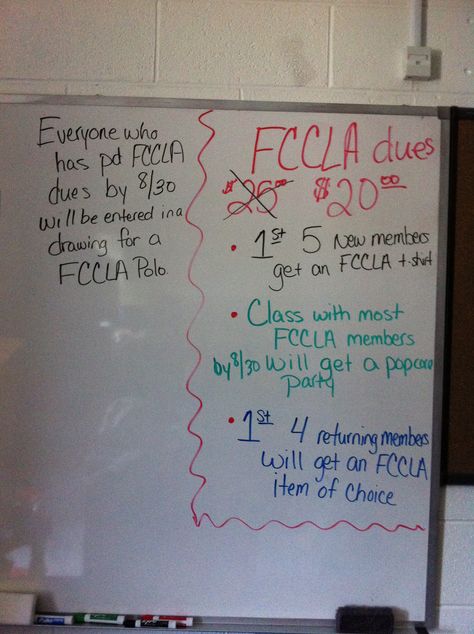 Everyone who
has pd FCCLA
dues by 8/30
will be entered in a
drawing for a
FCCLA Polo.
FCCLA dues
$25.00 $20.00
• 1st 5 New members
get an FCCLA t-shirt
• Class with most
FCCLA members
by 8/30 will get a popcorn
party
• 1st 4 returning members
will get an FCCLA
item of choice